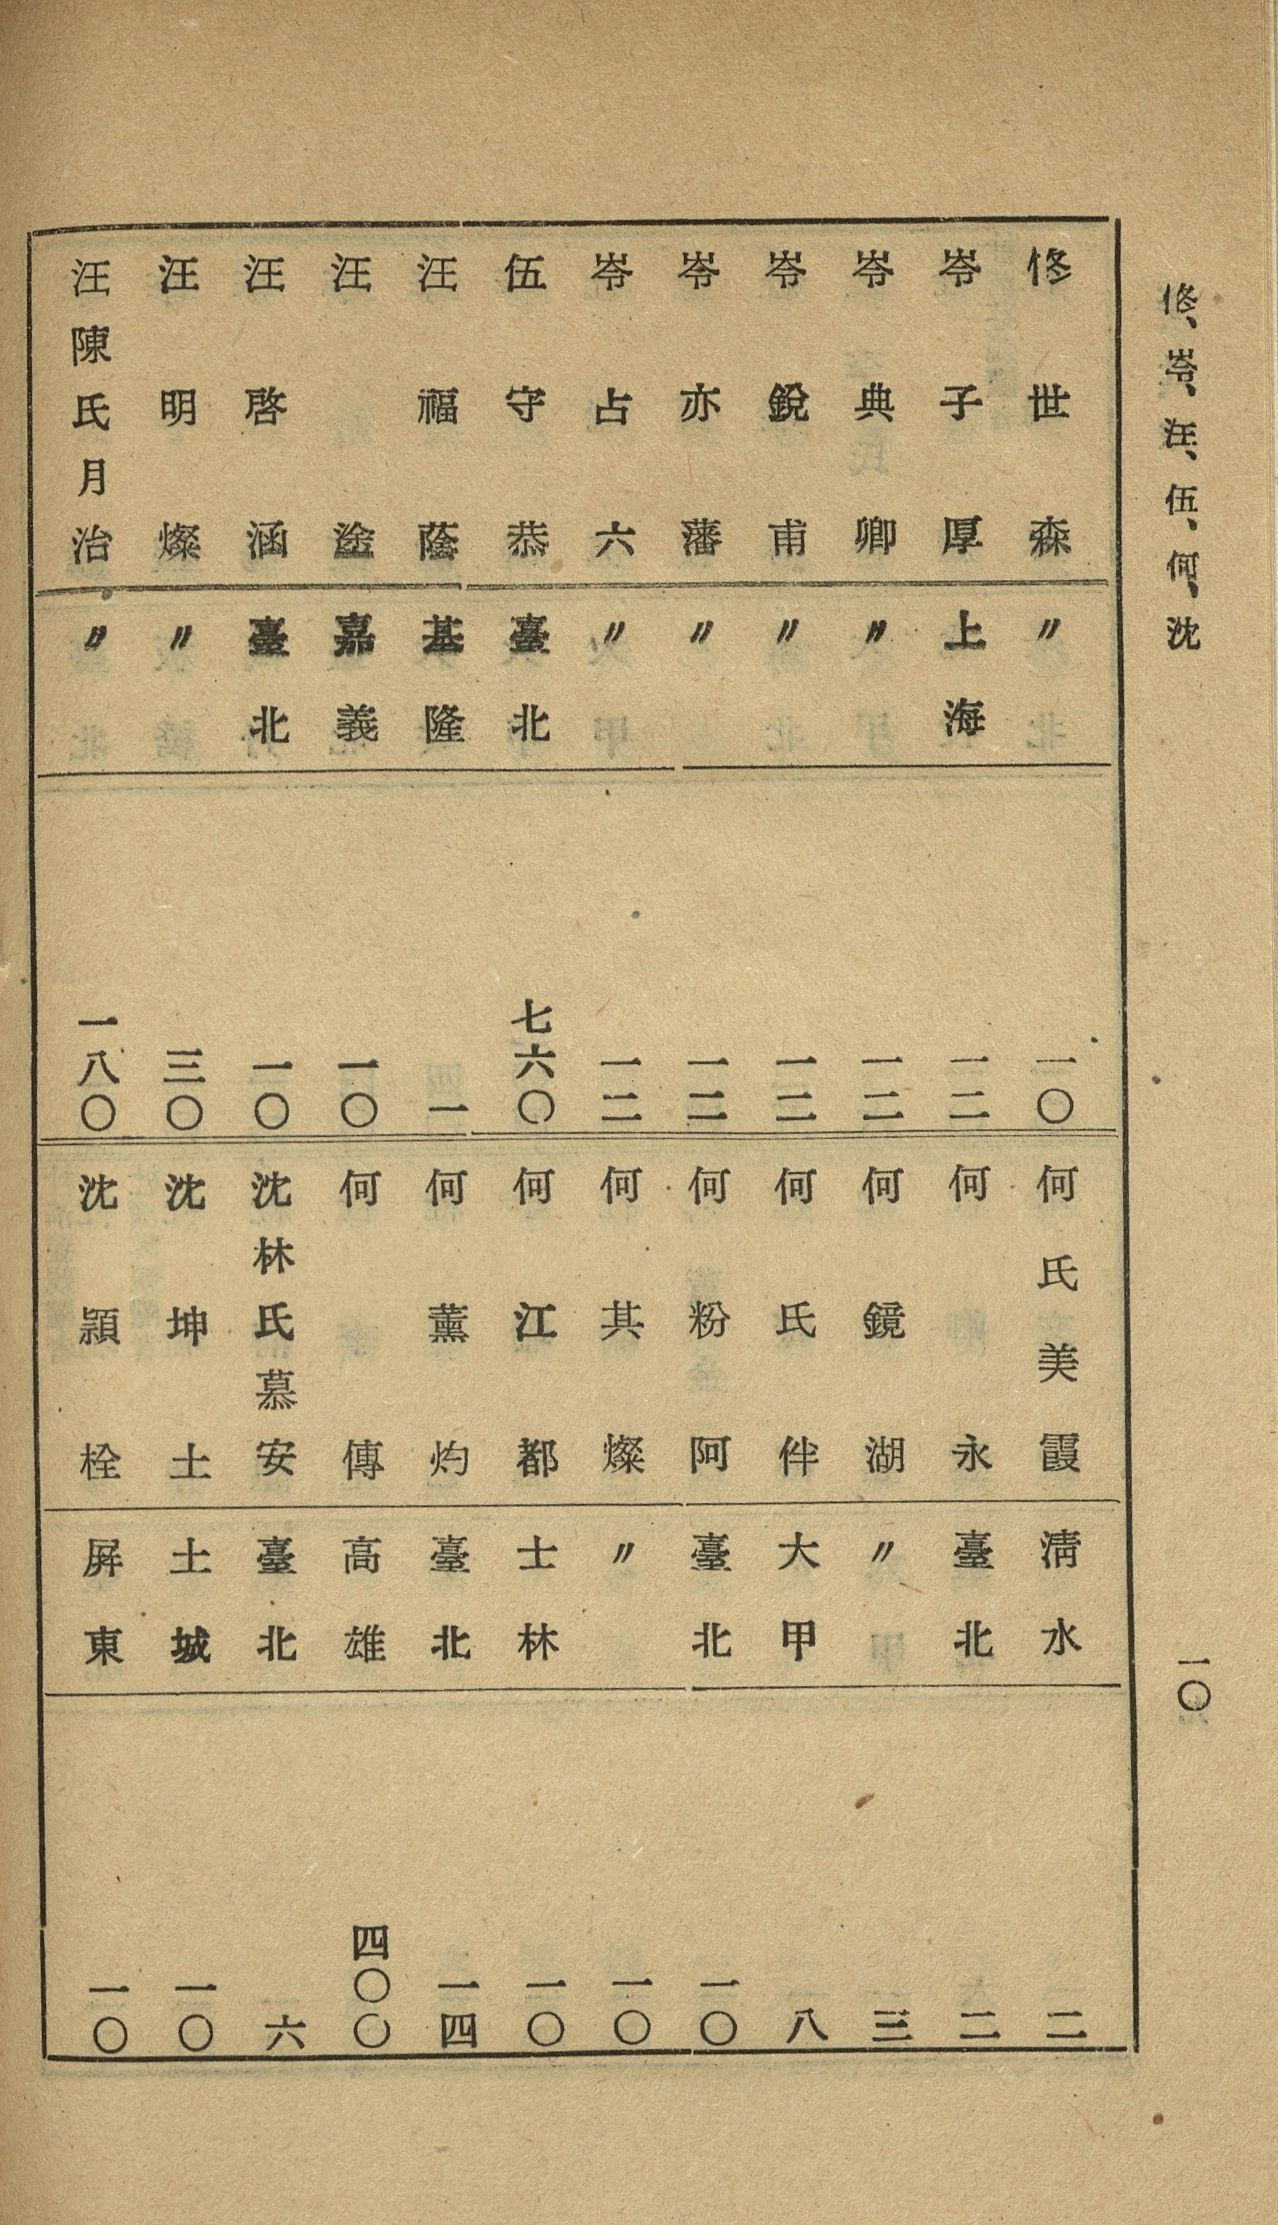 修、岺、汪、伍、何、沈
一〇
修世森 〃 一〇
岺子厚 上海 一二
岺典卿 〃 一二
岺銳甫 〃 一二
岺亦藩 〃 一二
岺占六 〃 一二
伍守恭 臺北 七六〇
汪福蔭 基隆 一
汪塗 嘉義 一〇
汪啓涵 臺北 一〇
汪明燦 〃 三〇
汪陳氏月治 〃 一八〇
何氏美霞 淸水 二
何永 臺北 二
何鏡湖 〃 三
何氏伴 大甲 八
何粉阿 臺北 一〇
何其燦 〃 一〇
何江都 士林 一〇
何薰灼 臺北 一四
何傳 高雄 四〇〇
沈林氏慕安 臺北 六
沈坤土 土城 一〇
沈頴栓 屛東 一〇